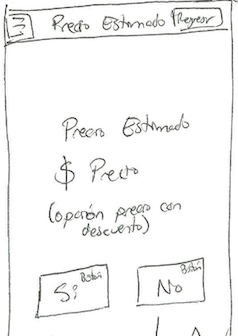 Precio Estimado Regresar
Precio Estimado
$ Precio
(opción precio con
descuento)
Botón Botón
Si No